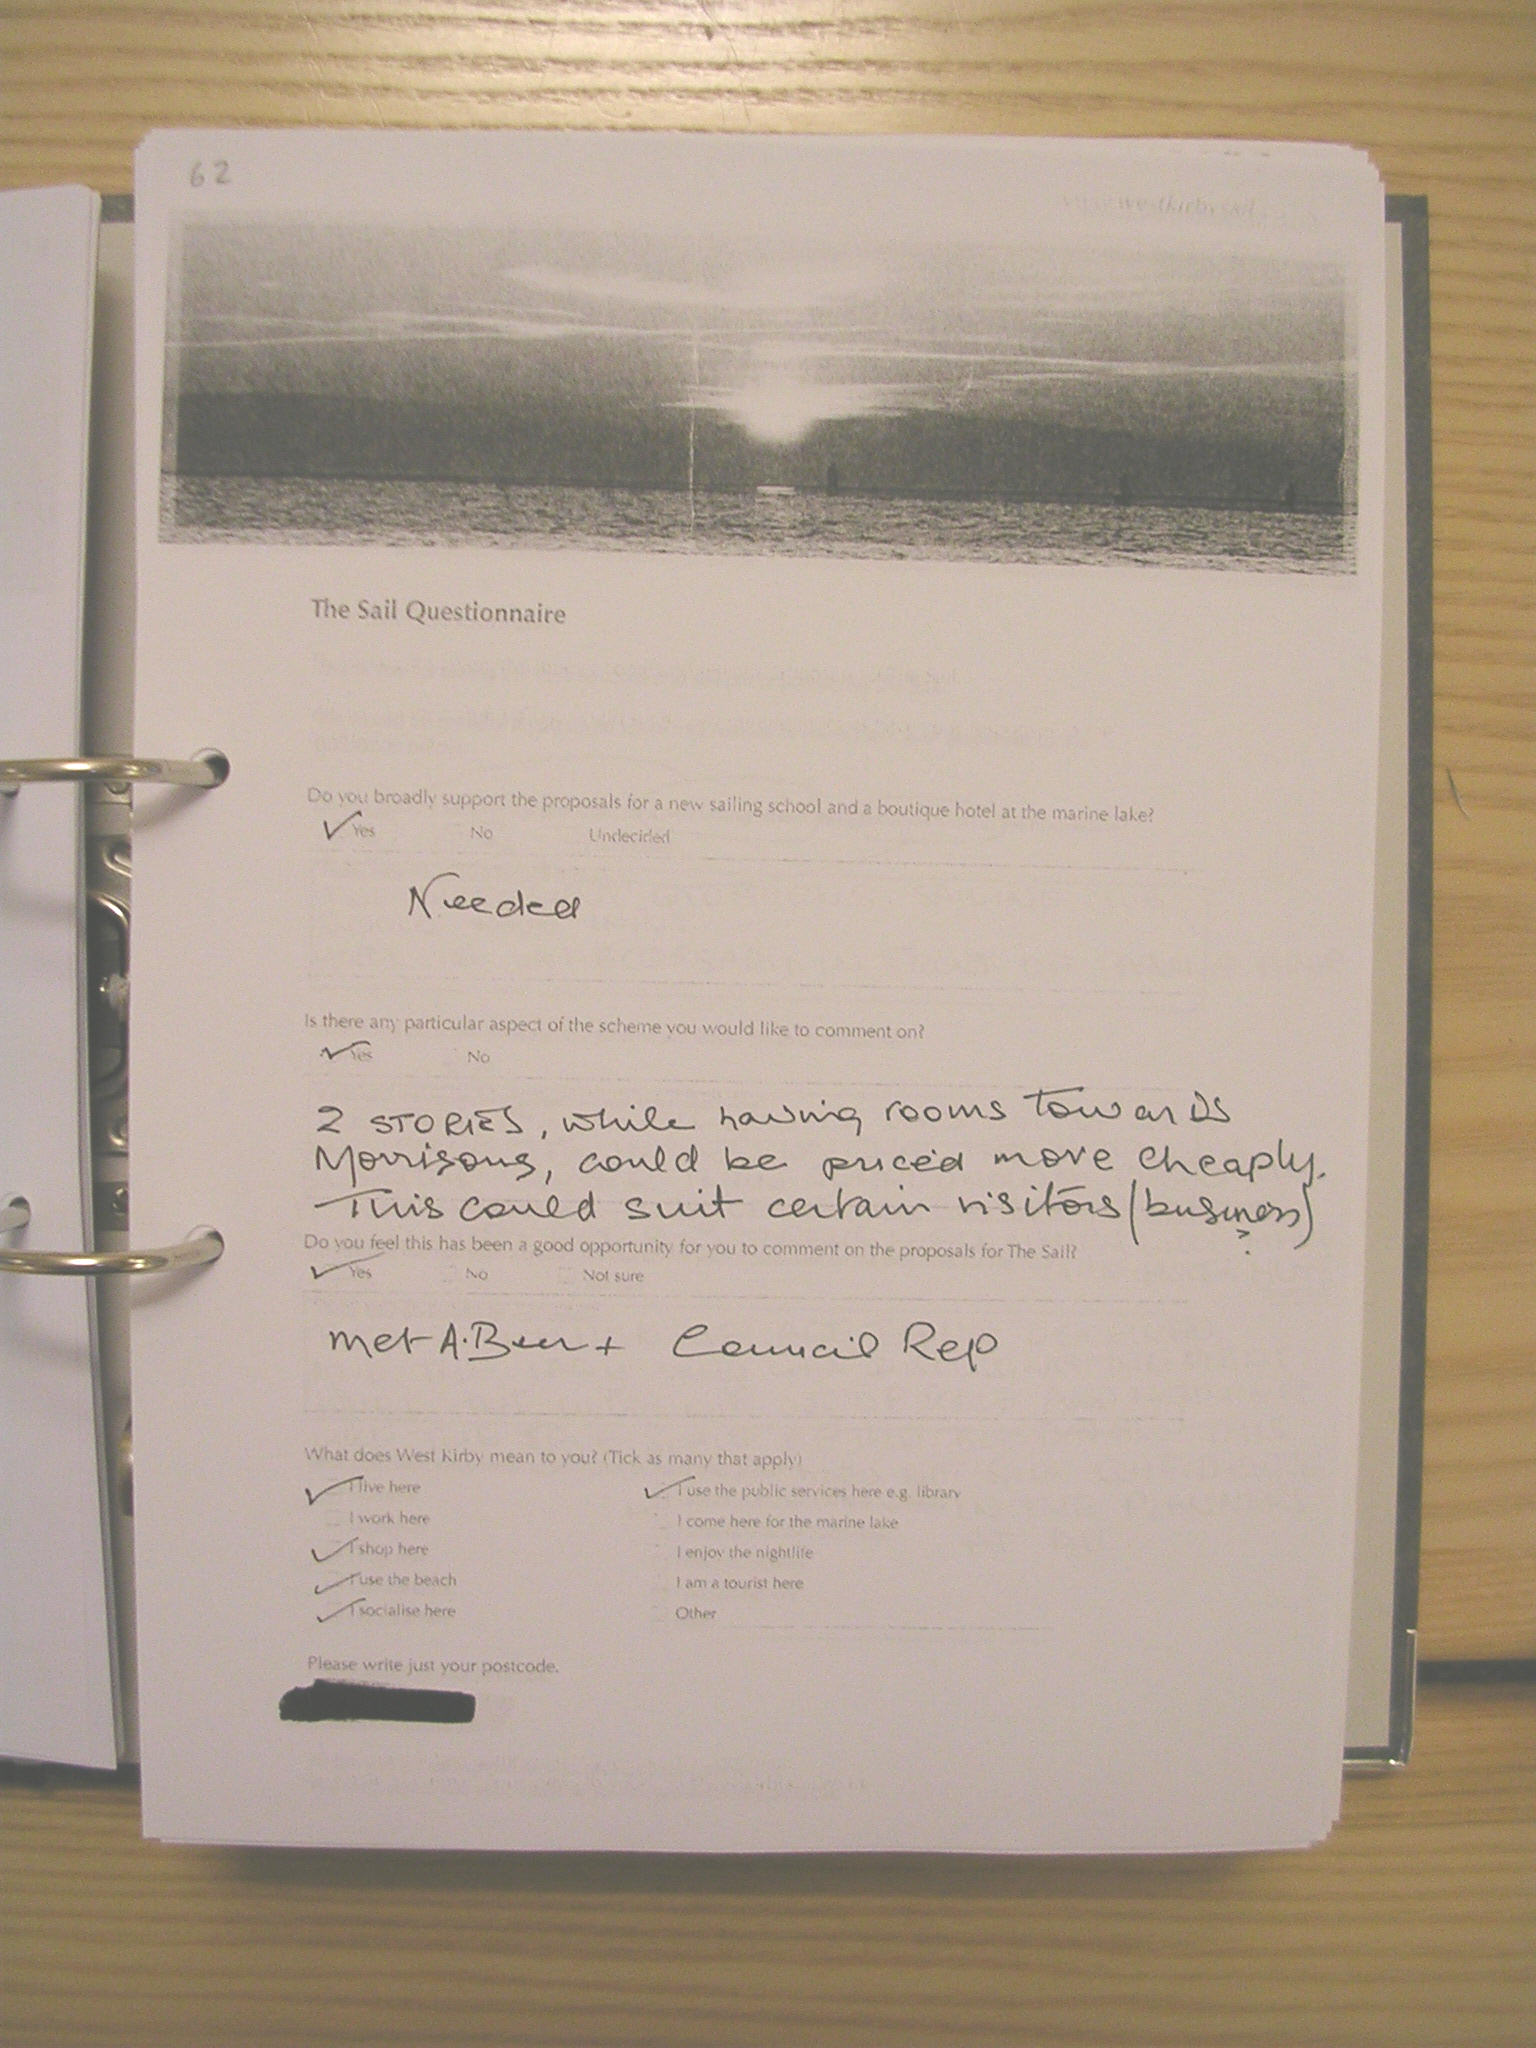 62
The Sail Questionnaire
Do you broadly support the proposals for a new sailing school and a boutique hotel at the marine lake?
Yes No Undecided
Needed
Is there any particular aspect of the scheme you would like to comment on?
Yes No
2 STORIES, while having rooms towards
Morrisons, could be priced more cheaply.
This could suit certain visitors (business)
?
Do you feel this has been a good opportunity for you to comment on the proposals for The Sail?
Yes No Not sure
Met A. Beer + Council Rep
What does West Kirby mean to you? (Tick as many that apply)
I live here I use the public services here e.g. library
I work here I come here for the marine lake
I shop here I enjoy the nightlife
I use the beach I am a tourist here
I socialise here Other
Please write just your postcode.